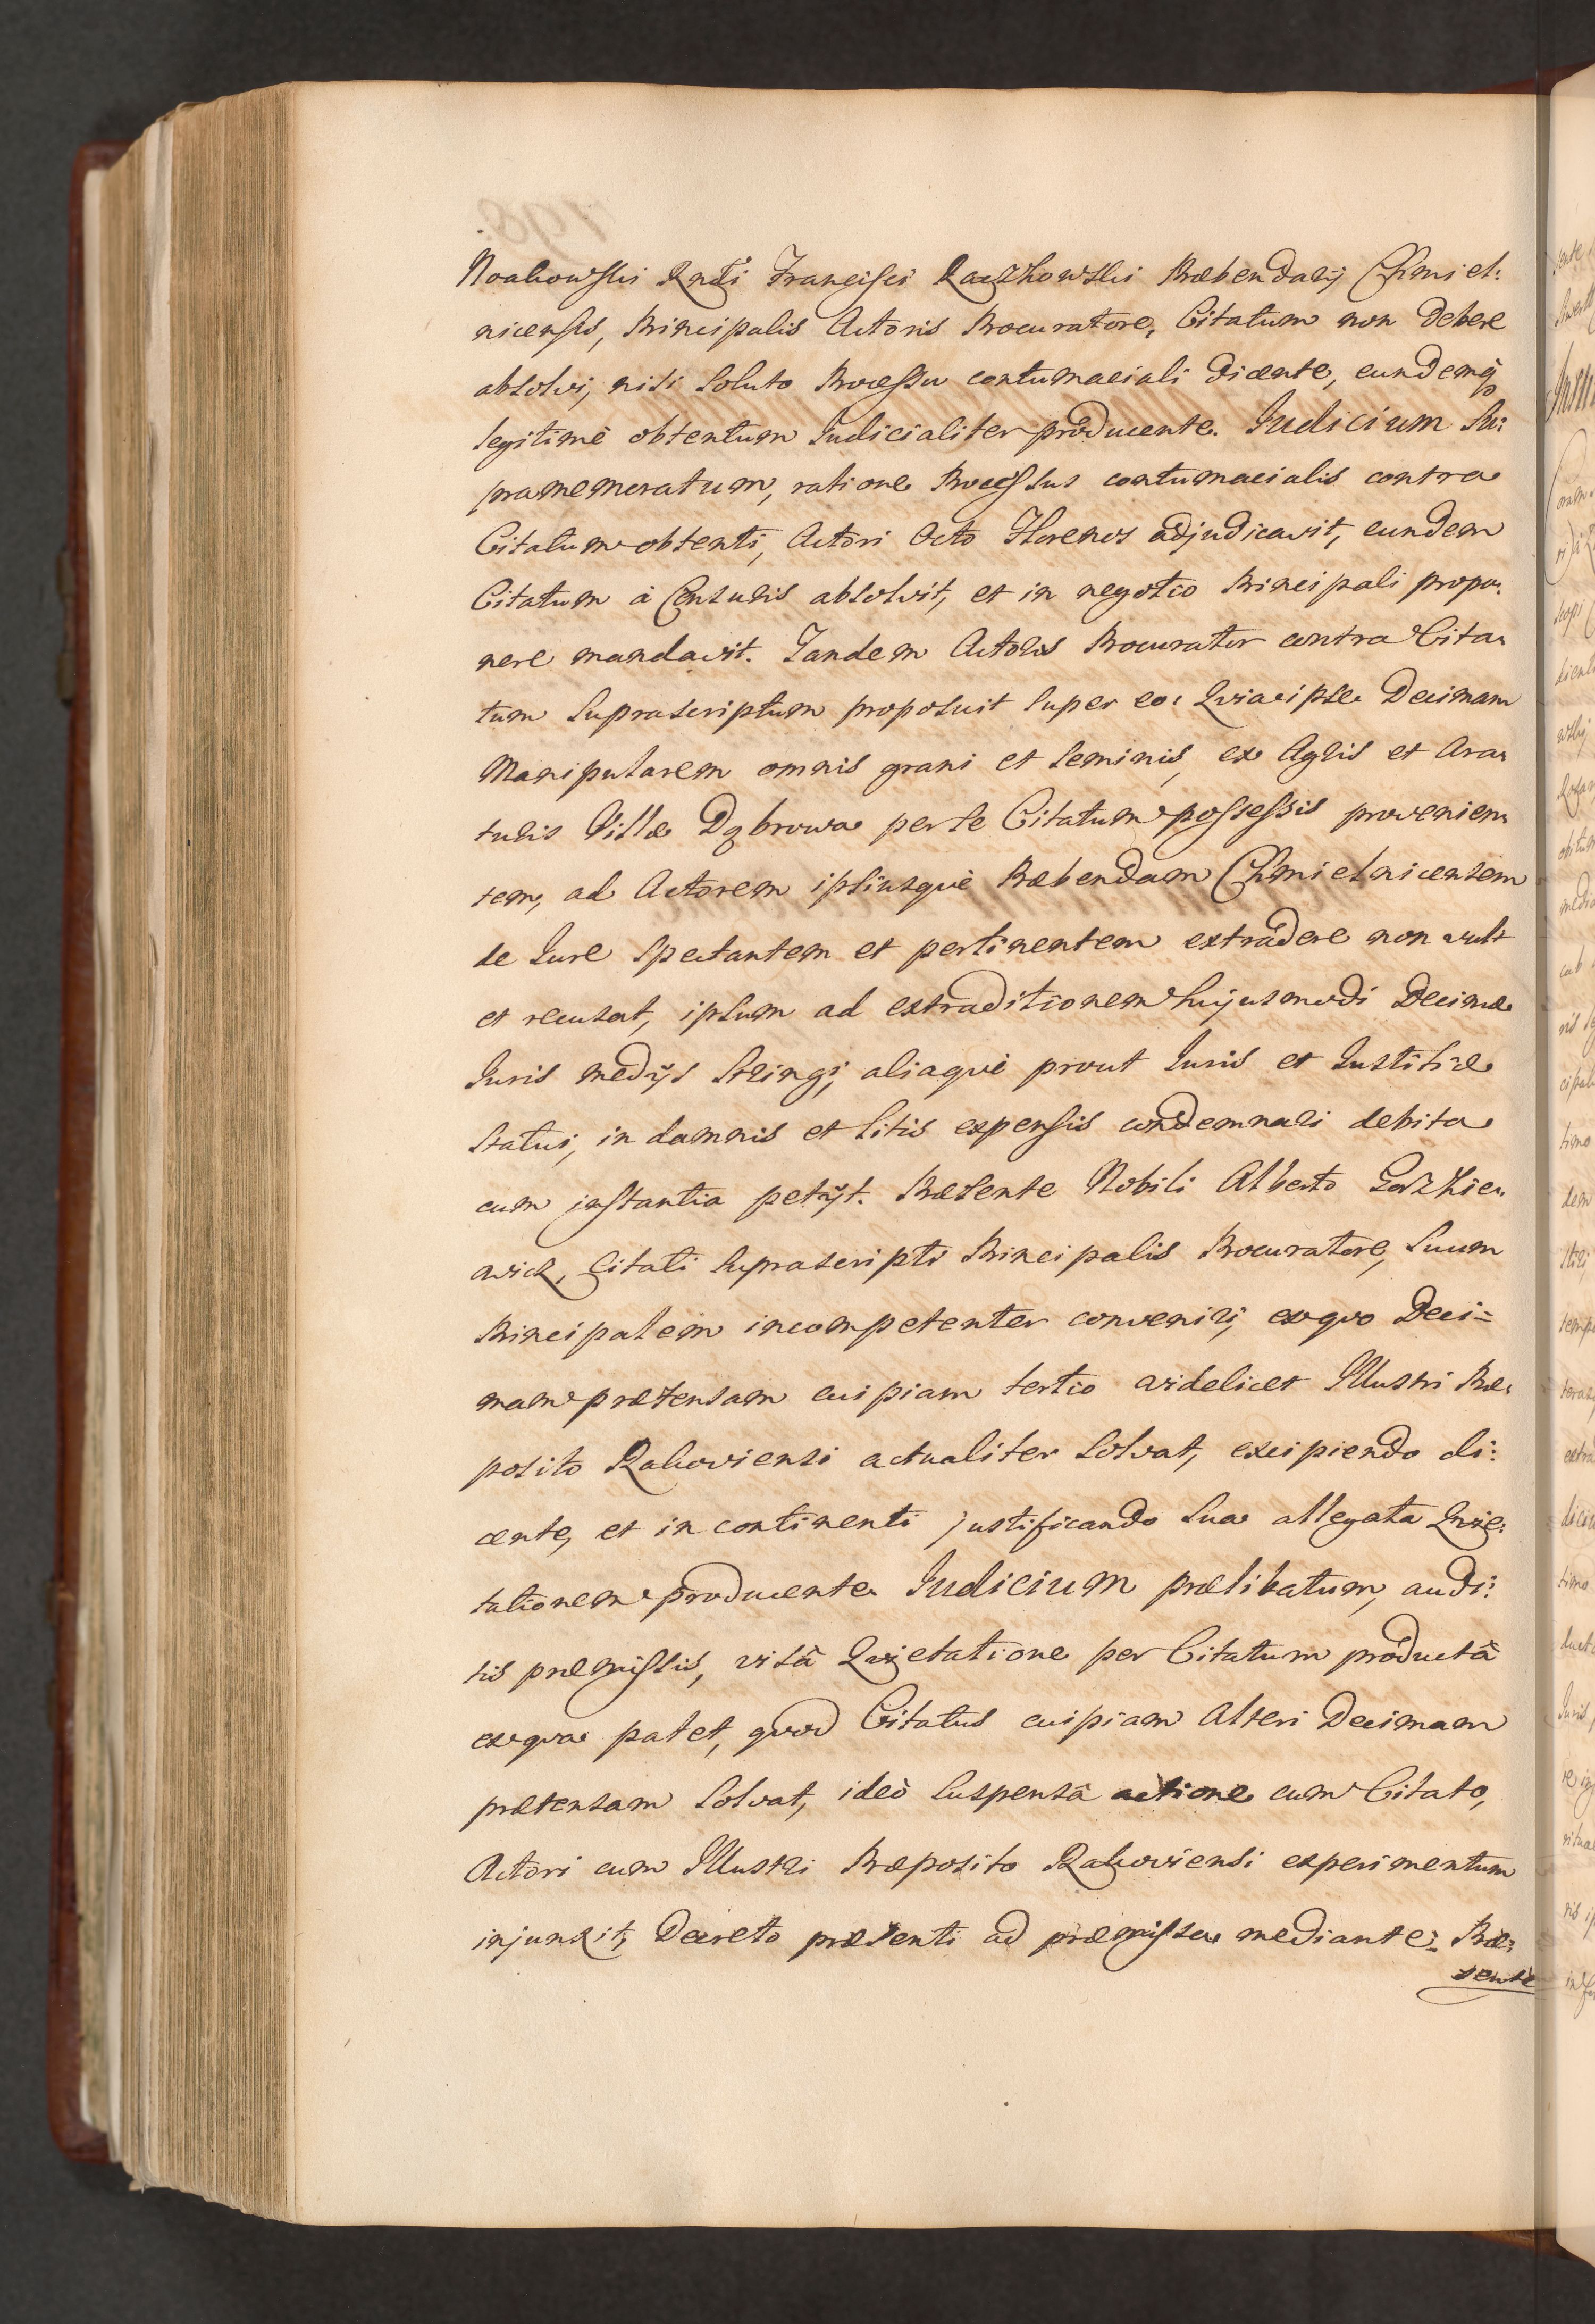 Noakowski Rndi Francisci Raczkowski Præbendarij Chmiel:
nicensis, Principalis Actoris Procuratore, Citatum non debere
absolvi, nisi soluto Processu contumaciali dicente, eundemq
legitimè obtentum Judicialiter producente. Judicium Su:
pramemoratum, ratione Processus contumacialis contra
Citatum obtenti, Actori Octo Florenos adjudicavit, eundem
Citatum à Censuris absolvit, et in negotio Principali propo:
nere mandavit. Tandem Actoris Procurator contra Cita:
tum Suprascriptum proposuit super eo: Quia ipse Decimam
Manipularem omnis grani et seminis, ex Agris et Ara:
turis Villæ Dąbrowa per se Citatum possessis provenien:
tem, ad Actorem ipsiusquè Præbendam Chmielnicensem
de Jure spectantem et pertinentem extradere non vult
et recusat, ipsum ad extraditionem hujusmodi Decimæ
Juris medijs stringi, aliaquè prout Juris et Justitiæ
statui, in damnis et litis expensis condemnari debita
cum instantia petijt. Præsente Nobili Alberto Gorzkie:
wicz, Citati Suprascripti Principalis Procuratore, suum
Principalem incompetenter conveniri, exquo Deci=
mam prætensam cuipiam tertio videlicet Illustri Præ:
posito Rakoviensi actualiter solvat, excipiendo di:
cente, et in continenti justificando sua allegata Quie:
tationem producente. Judicium prælibatum, audi:
tis præmissis, visâ Quietatione per Citatum productâ
ex qua patet, quod Citatus cuipiam Alteri Decimam
prætensam solvat, ideò suspensâ actione cum Citato,
Actori cum Illustri Præposito Rakoviensi experimentum
injunxit, Decreto præsenti ad præmissa mediante. Præ:
sente